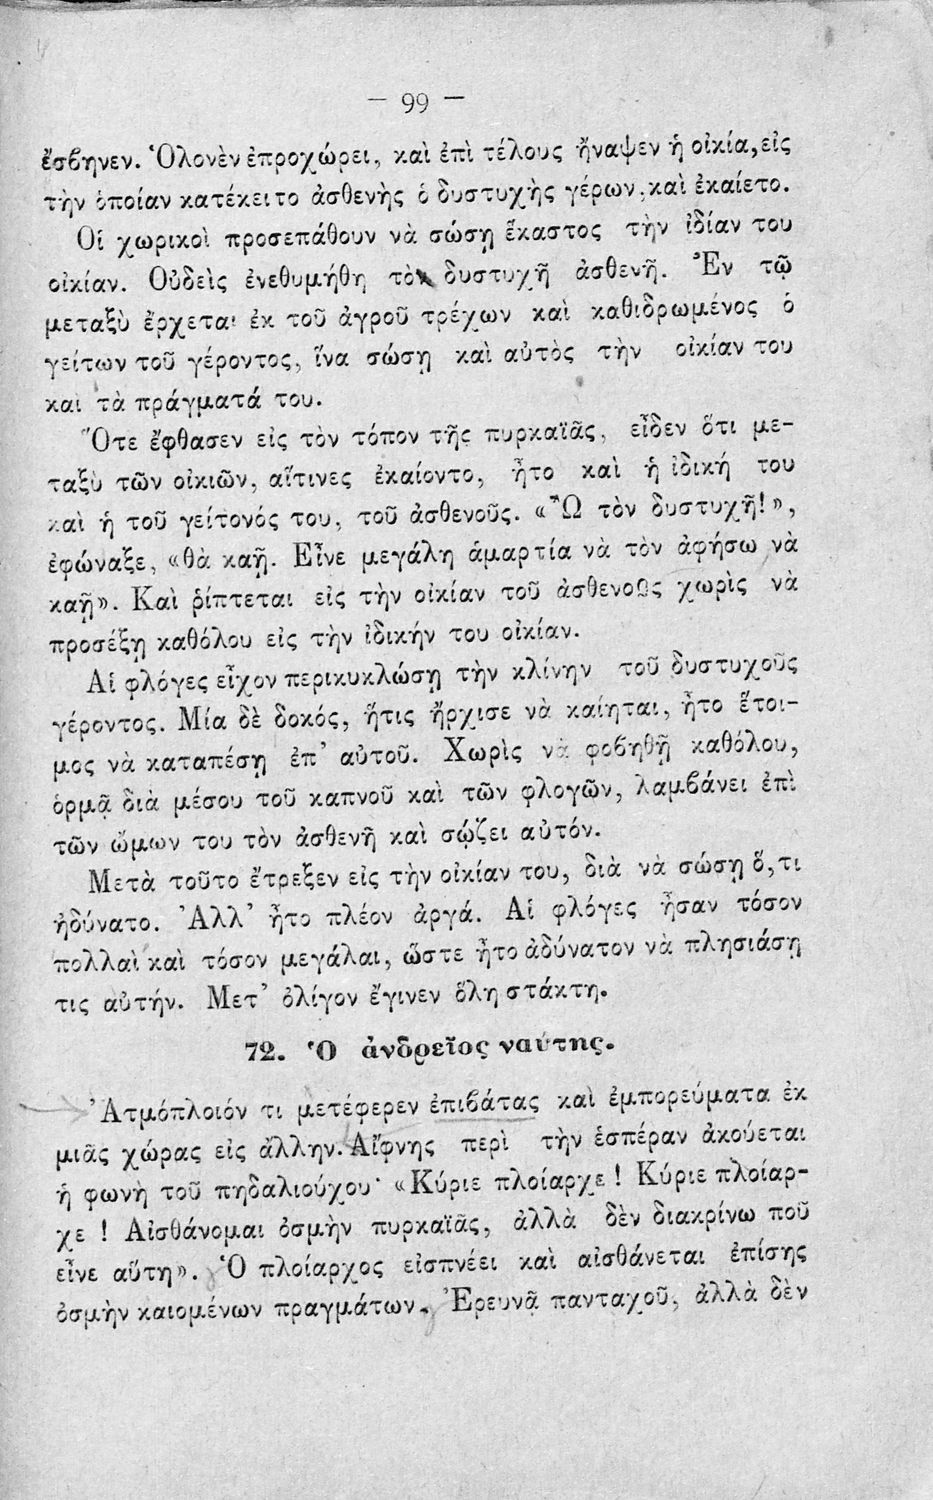 — 99 —
ἔσβηνεν. Ὁλονὲν ἐπροχώρει, καὶ ἐπὶ τέλους ἤναψεν ἡ οἰκία, εἰς
τὴν ὁποίαν κατέκειτο ἀσθενὴς ὁ δυστυχὴς γέρων, καὶ ἐκαίετο.
Οἱ χωρικοὶ προσεπάθουν νὰ σώσῃ ἕκαστος τὴν ἰδίαν του
οἰκίαν. Οὐδεὶς ἐνεθυμήθη τὸν δυστυχῆ ἀσθενῆ. Ἐν τῷ
μεταξὺ ἔρχεται ἐκ τοῦ ἀγροῦ τρέχων καὶ καθιδρωμένος ὁ
γείτων τοῦ γέροντος, ἵνα σώσῃ καὶ αὐτὸς τὴν οἰκίαν του
καὶ τὰ πράγματά του.
Ὅτε ἔφθασεν εἰς τὸν τόπον τῆς πυρκαϊᾶς, εἶδεν ὅτι με-
ταξὺ τῶν οἰκιῶν, αἵτινες ἐκαίοντο, ἦτο καὶ ἡ ἰδική του
καὶ ἡ τοῦ γείτονός του, τοῦ ἀσθενοῦς. «Ὦ τὸν δυστυχῆ!»,
ἐφώναξε, «θὰ καῇ. Εἶνε μεγάλη ἁμαρτία νὰ τὸν ἀφήσω νὰ
καῇ». Καὶ ῥίπτεται εἰς τὴν οἰκίαν τοῦ ἀσθενοῦς χωρὶς νὰ
προσέξῃ καθόλου εἰς τὴν ἰδικήν του οἰκίαν.
Αἱ φλόγες εἶχον περικυκλώσῃ τὴν κλίνην τοῦ δυστυχοῦς
γέροντος. Μία δὲ δοκός, ἥτις ἤρχισε νὰ καίηται, ἦτο ἕτοι-
μος νὰ καταπέσῃ ἐπ' αὐτοῦ. Χωρὶς νὰ φοβηθῇ καθόλου,
ὁρμᾷ διὰ μέσου τοῦ καπνοῦ καὶ τῶν φλογῶν, λαμβάνει ἐπὶ
τῶν ὤμων του τὸν ἀσθενῆ καὶ σῴζει αὐτόν.
Μετὰ τοῦτο ἔτρεξεν εἰς τὴν οἰκίαν του, διὰ νὰ σώσῃ ὅ,τι
ἠδύνατο. Ἀλλ' ἦτο πλέον ἀργά. Αἱ φλόγες ἦσαν τόσον
πολλαὶ καὶ τόσον μεγάλαι, ὥστε ἦτο ἀδύνατον νὰ πλησιάσῃ
τις αὐτήν. Μετ' ὀλίγον ἔγινεν ὅλη στάκτη.
72. Ὁ ἀνδρεῖος ναύτης.
Ἀτμόπλοιόν τι μετέφερεν ἐπιβάτας καὶ ἐμπορεύματα ἐκ
μιᾶς χώρας εἰς ἄλλην. Αἴφνης περὶ τὴν ἑσπέραν ἀκούεται
ἡ φωνὴ τοῦ πηδαλιούχου· «Κύριε πλοίαρχε! Κύριε πλοίαρ-
χε! Αἰσθάνομαι ὀσμὴν πυρκαϊᾶς, ἀλλὰ δὲν διακρίνω ποῦ
εἶνε αὕτη». Ὁ πλοίαρχος εἰσπνέει καὶ αἰσθάνεται ἐπίσης
ὀσμὴν καιομένων πραγμάτων. Ἐρευνᾷ πανταχοῦ, ἀλλὰ δὲν